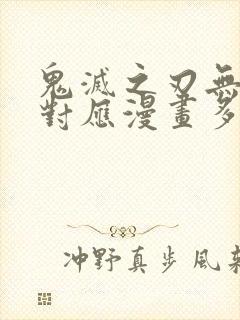 鬼滅之刃無
對應漫畫多
冲野真步風菜